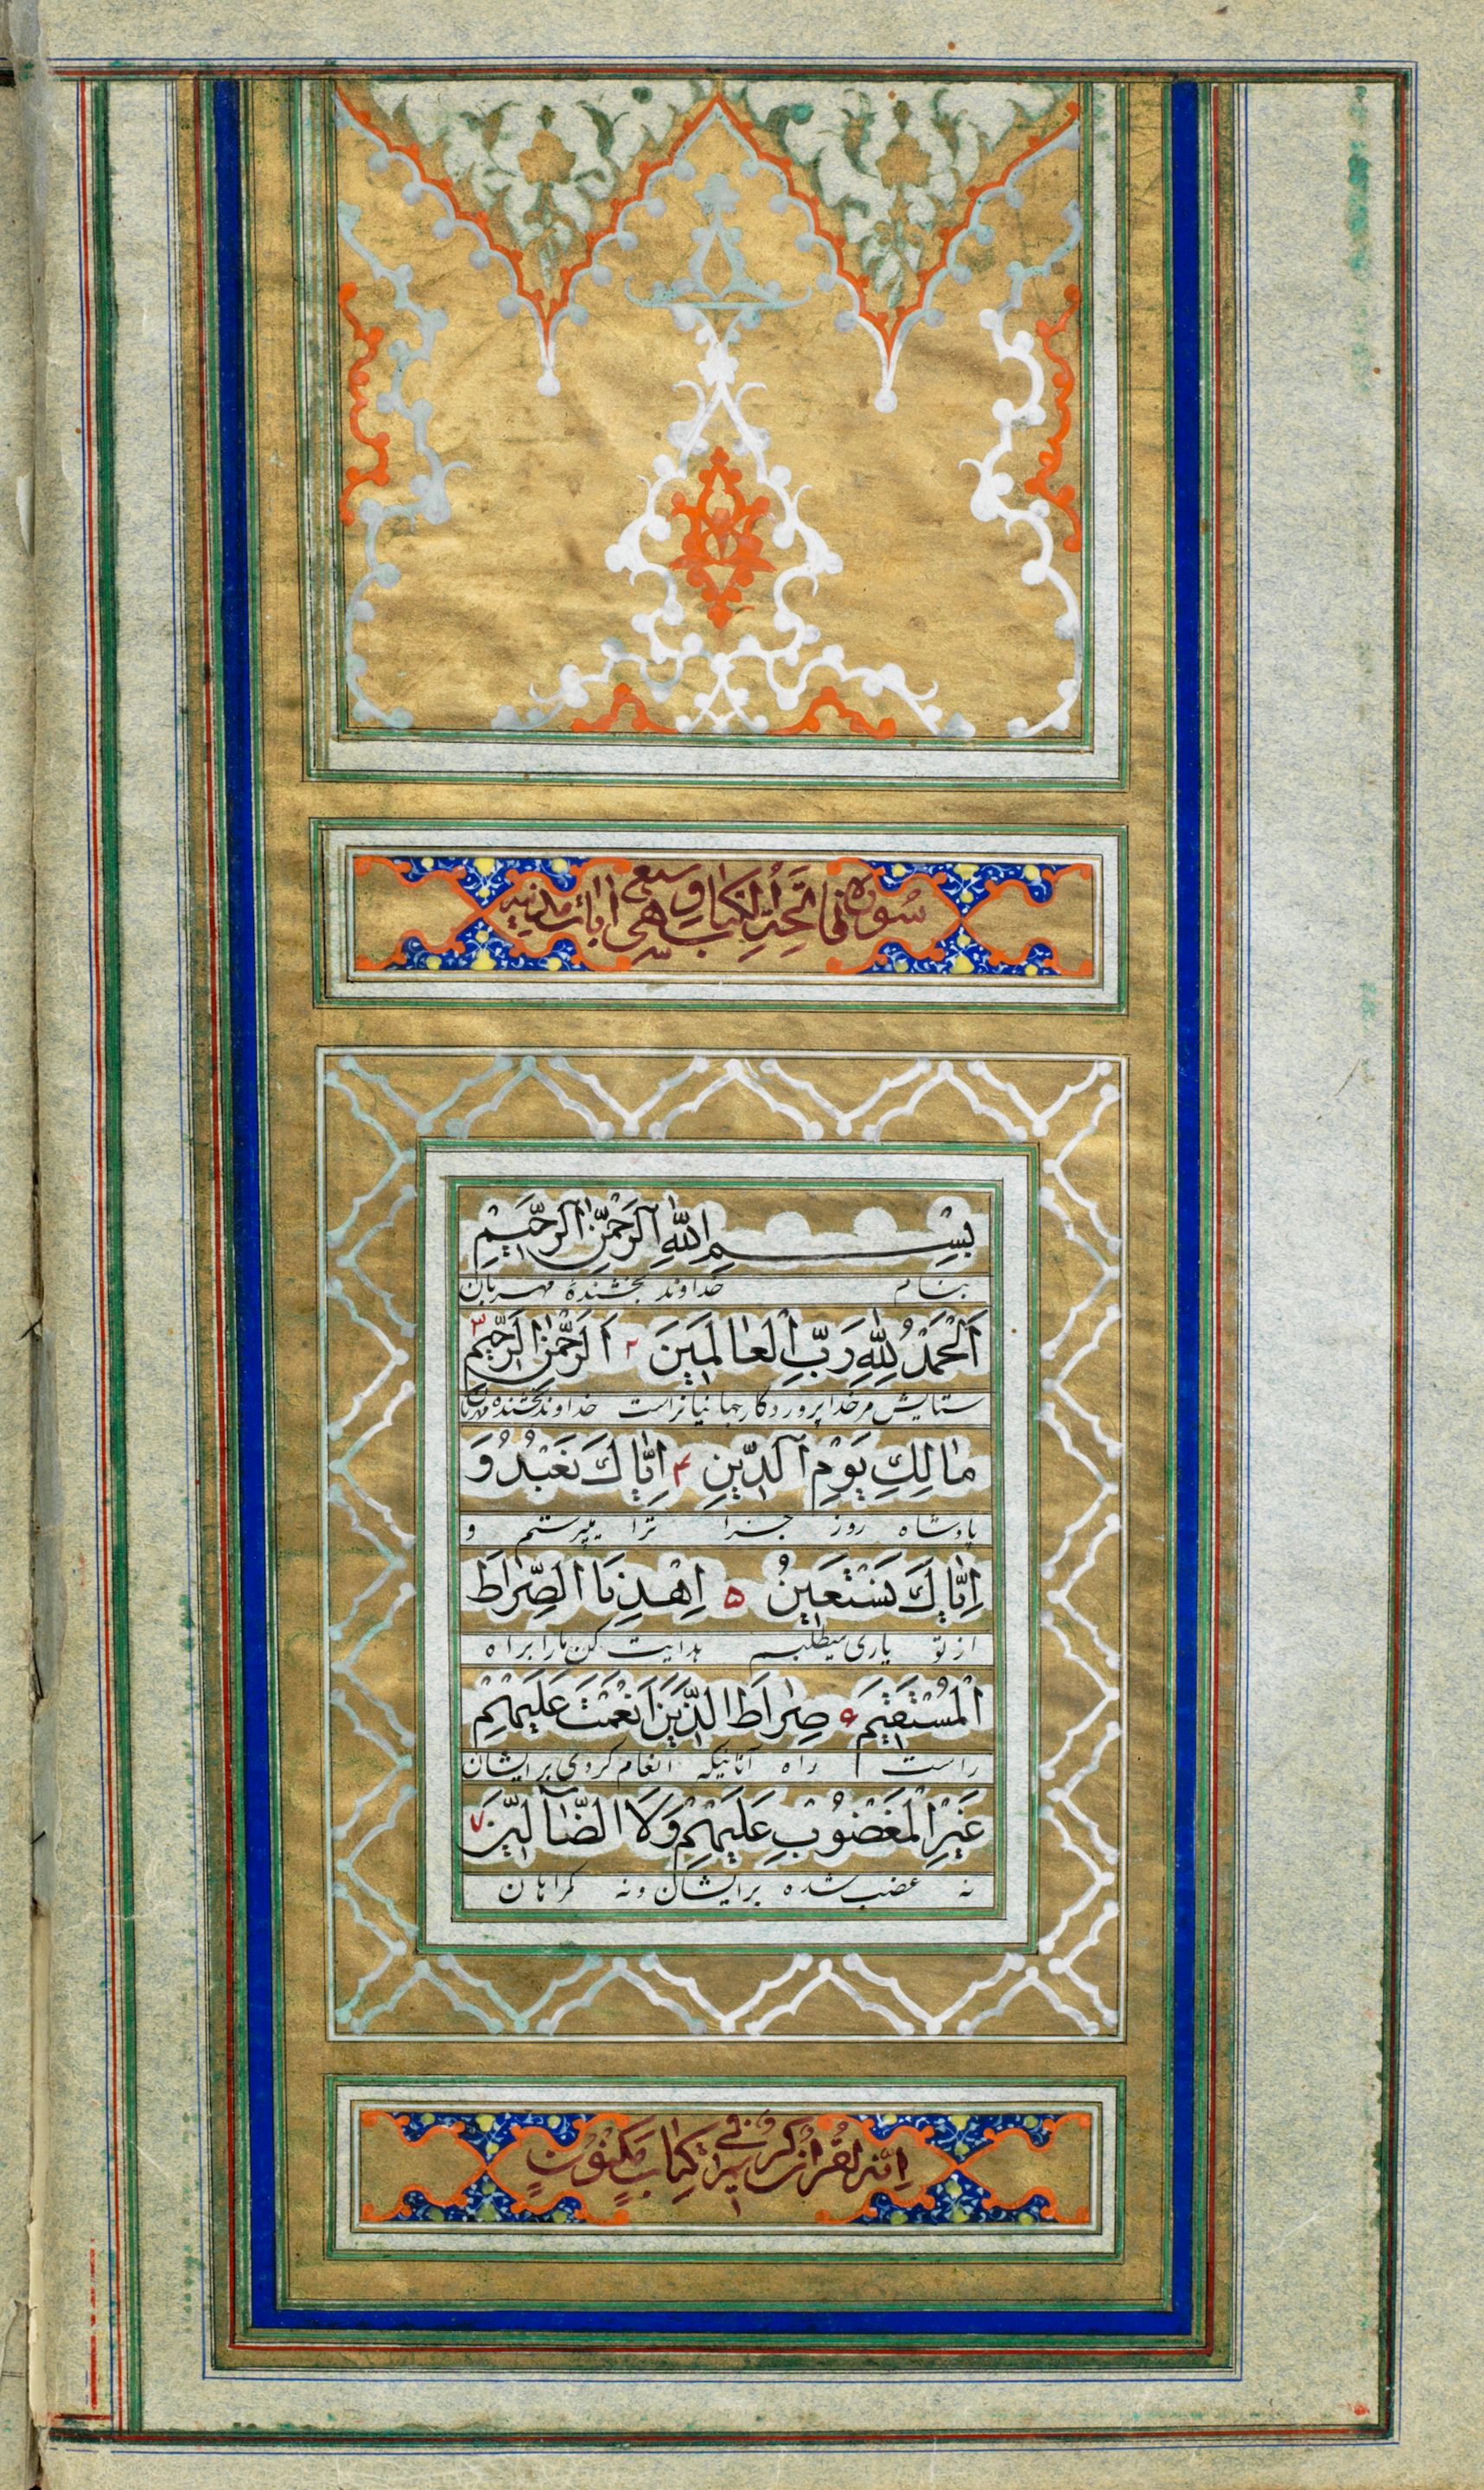 سُورَة فَاتِحَةِ الْكِتَابِ وَهِيَ سَبْعُ اٰیَات مَدَنِیَّه
بِسْمِ اللّٰهِ الرَّحْمٰنِ الرَّحِيْمِ
بنام خداوند بخشندهٔ مهربان
اَلْحَمْدُ لِلّٰهِ رَبِّ الْعٰالَمِينَ ۲ اَلرَّحْمٰنِ الرَّحِيْمِ ۳
ستایش مر خدا پروردگار جهانیانراست خداوند بخشنده مهربان
مٰالِكِ يَوْمِ الدِّينِ ۴ اِيّٰاكَ نَعْبُدُ وَ
پادشاه روز جزا ترا میپرستم و
اِيّٰاكَ نَسْتَعِينُ ۵ اِهْدِنَا الصِّرٰاطَ
از تو یاری میطلبم هدایت کن ما را براه
الْمُسْتَقِيْمَ ۶ صِرٰاطَ الَّذِينَ اَنْعَمْتَ عَلَيْهِمْ
راست راه آنانیکه انعام کردی برایشان
غَيْرِ الْمَغْضُوْبِ عَلَيْهِمْ وَلَا الضّٰٓالِّيْنَ ۷
نه غضب شده برایشان و نه گمراهان
اِنَّهُ لَقُرْاٰنٌ كَرِيْمٌ فِي كِتٰابٍ مَكْنُوْنٍ